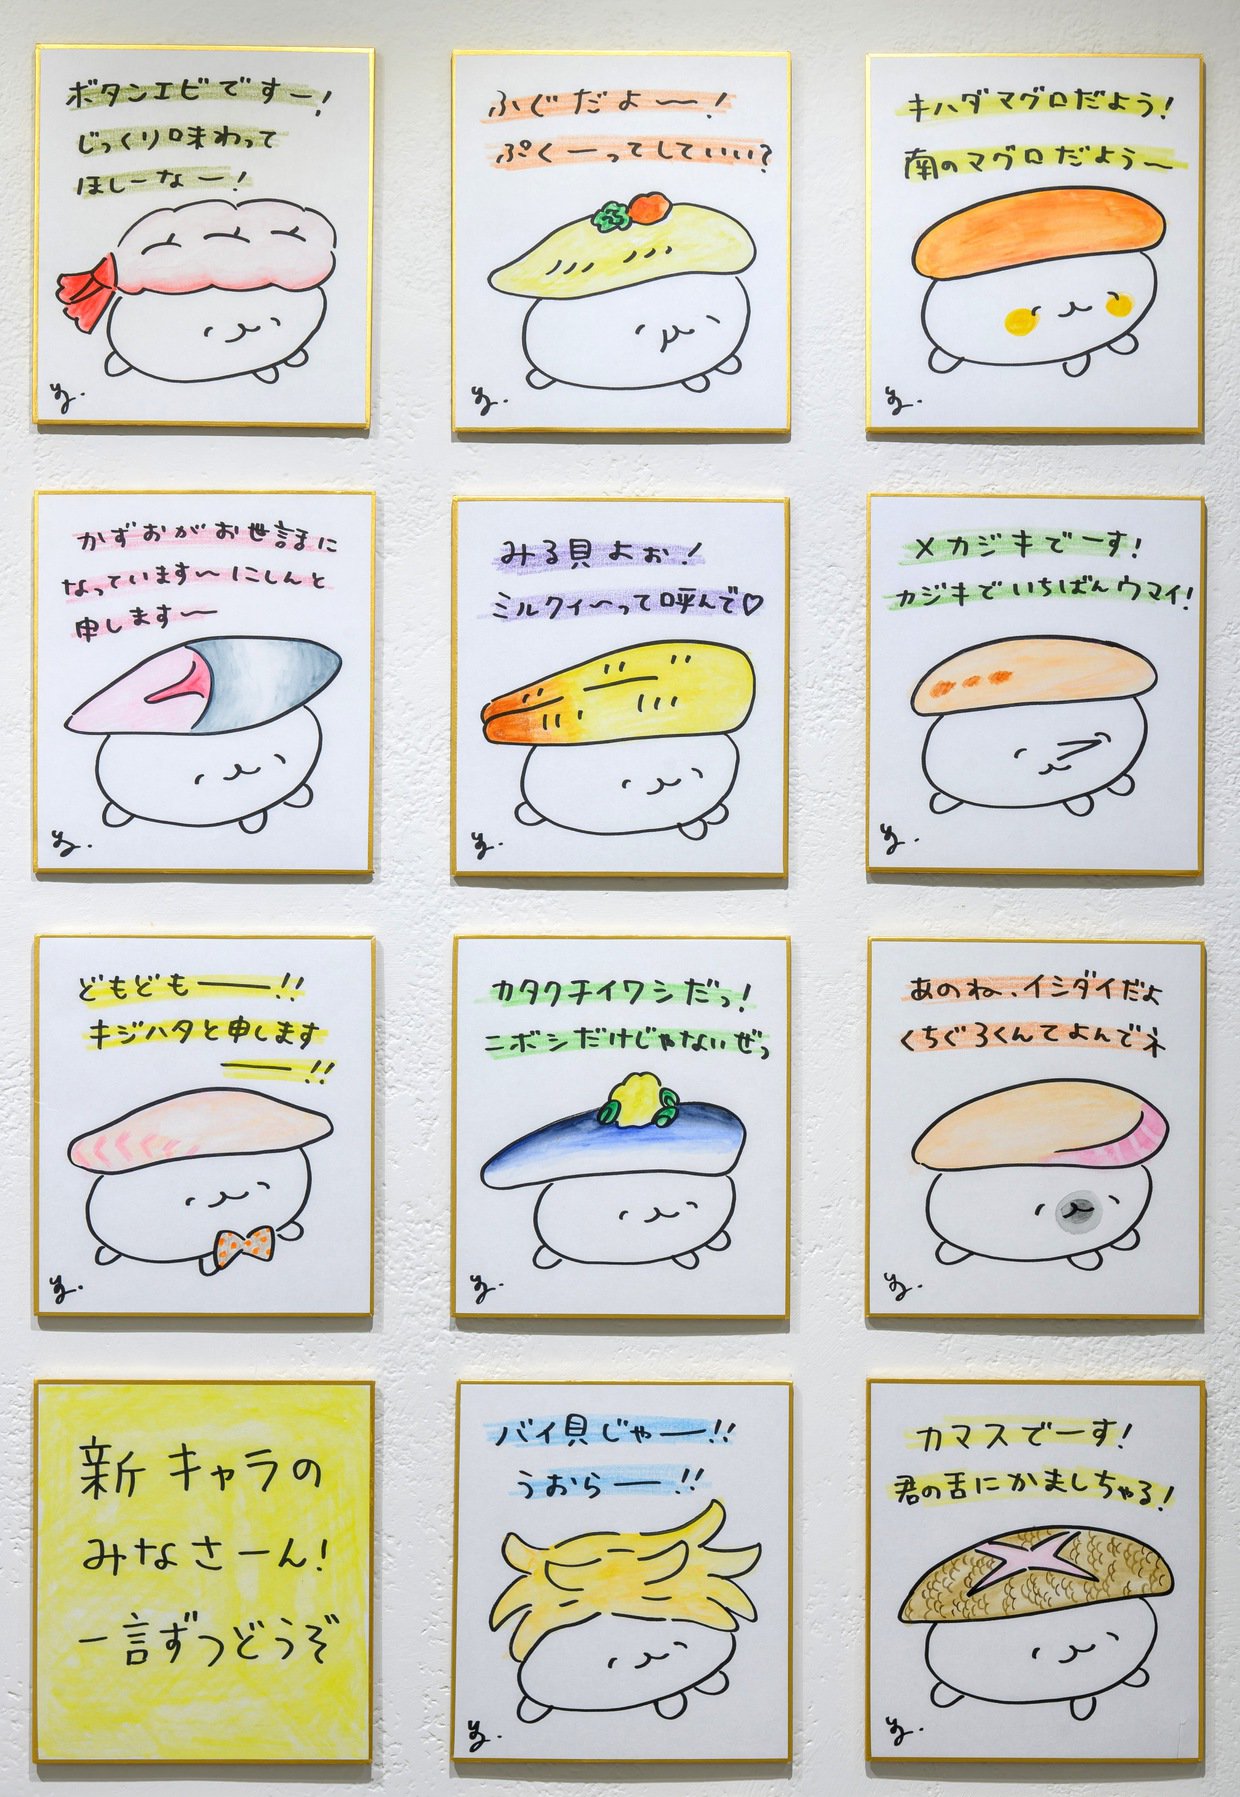 ボタンエビですー!
じっくり味わって
ほしーなー!
ふぐだよ〜!
ぷくーってしていい?
キハダマグロだよう!
南のマグロだよう〜
かずおがお世話に
なっています〜にしんと
申します〜
みる貝よぉ!
ミルクィ〜って呼んで♡
メカジキでーす!
カジキでいちばんウマイ!
どもどもー!!
キジハタと申します
ー!!
カタクチイワシだっ!
ニボシだけじゃないぜっ
あのね、イシダイだよ
くちぐろくんてよんでネ
新キャラの
みなさーん!
一言ずつどうぞ
バイ貝じゃー!!
うおらー!!
カマスでーす!
君の舌にかましちゃる!